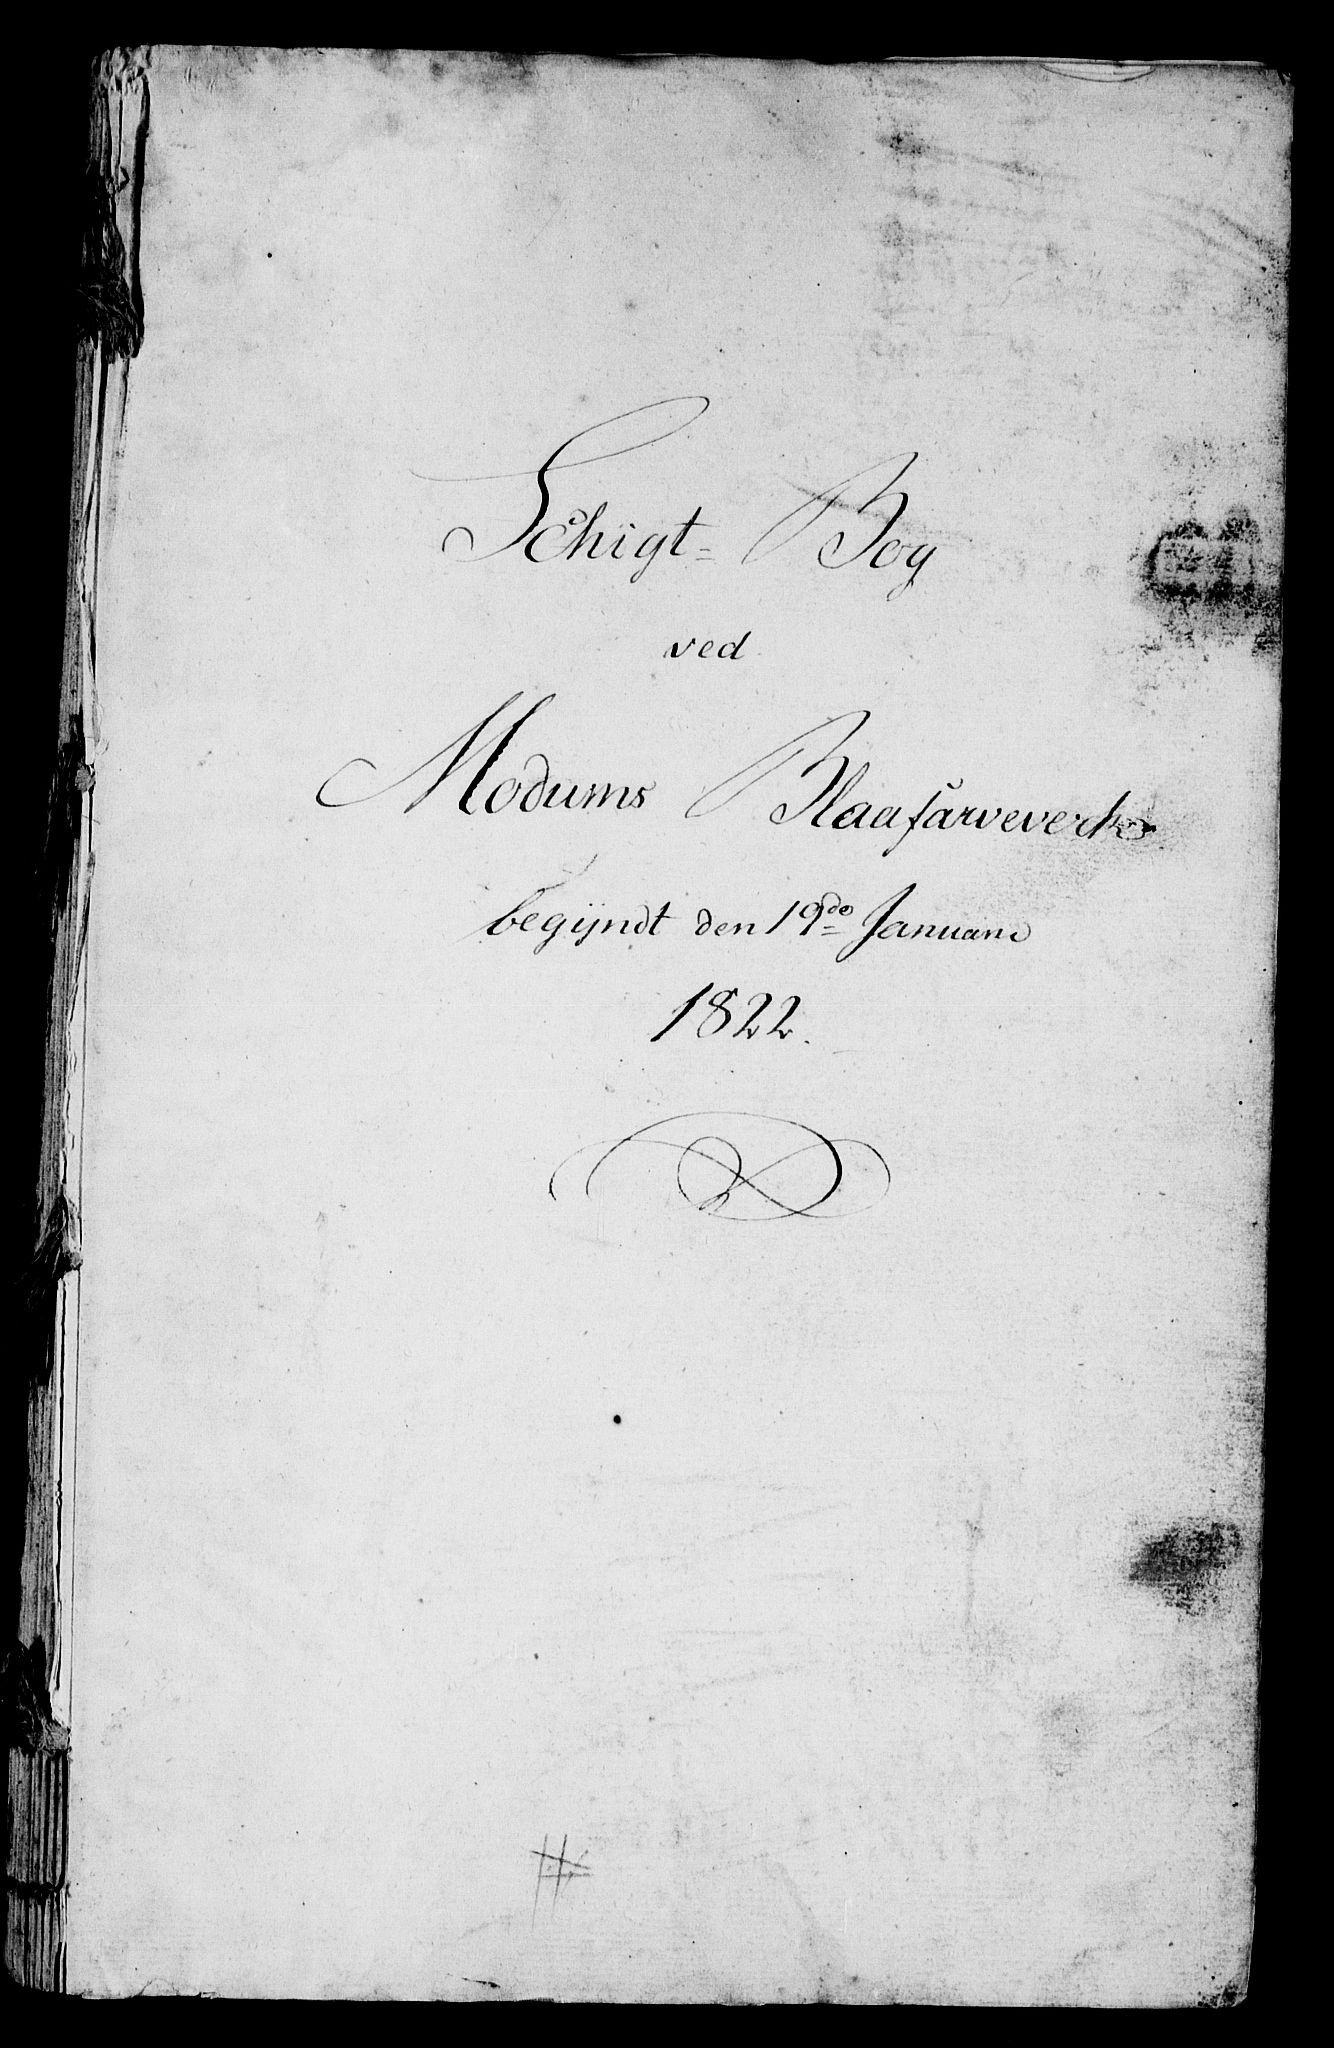 Schigt= Bog
ved
Modums Blaafarveverk
begÿndt den 19de Januari
1822.